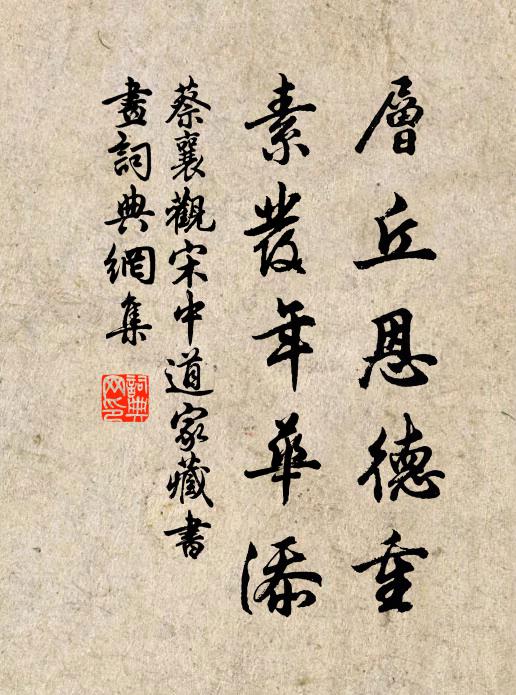 層丘恩德重
素發年華添
蔡襄觀宋中道家藏書
畫詞典網集
詞典
网印